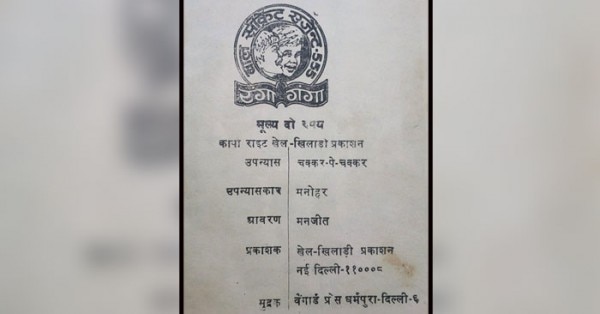 बाल सीक्रेट एजेन्ट-555
रंगा गंगा
मूल्य दो रुपय
कापा राइट खेल-खिलाडी प्रकाशन
उपन्यास चक्कर-पे-चक्कर
उपन्यासकार मनोहर
आवरण मनजीत
प्रकाशक खेल-खिलाड़ी प्रकाशन
नई दिल्ली-११०००८
मुद्रक वेंगार्ड प्रेस धर्मपुरा-दिल्ली-६